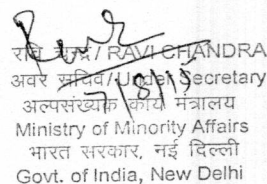 रवि चन्द्र / RAVI CHANDRA
अवर सचिव/Under Secretary
7/8/15
अल्पसंख्यक कार्य मंत्रालय
Ministry of Minority Affairs
भारत सरकार, नई दिल्ली
Govt. of India, New Delhi